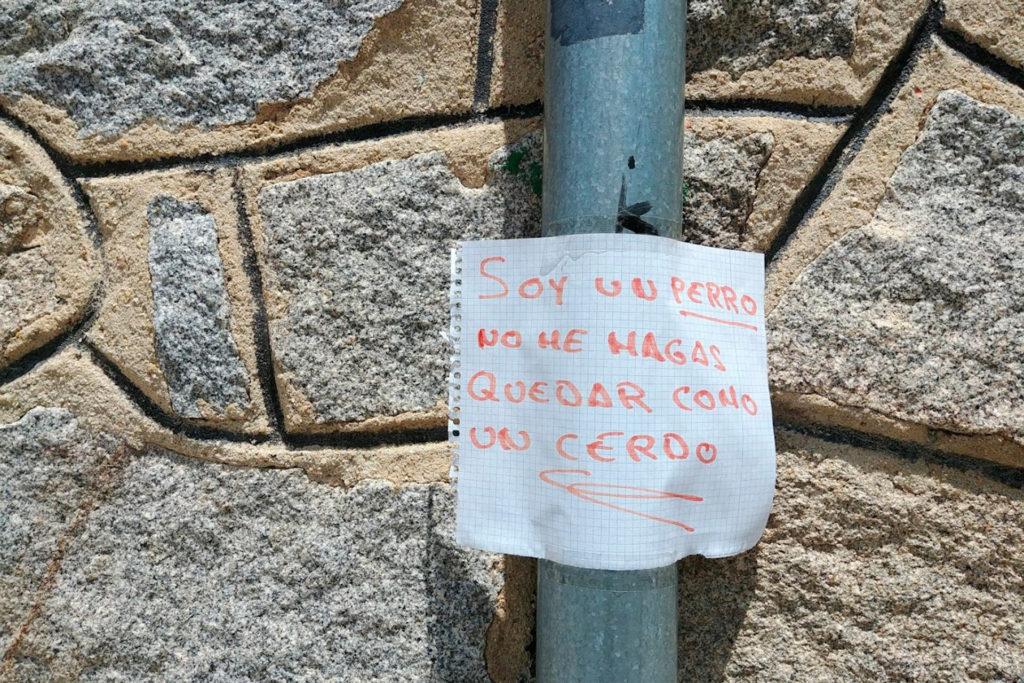 SOY UN PERRO
NO ME HAGAS
QUEDAR COMO
UN CERDO